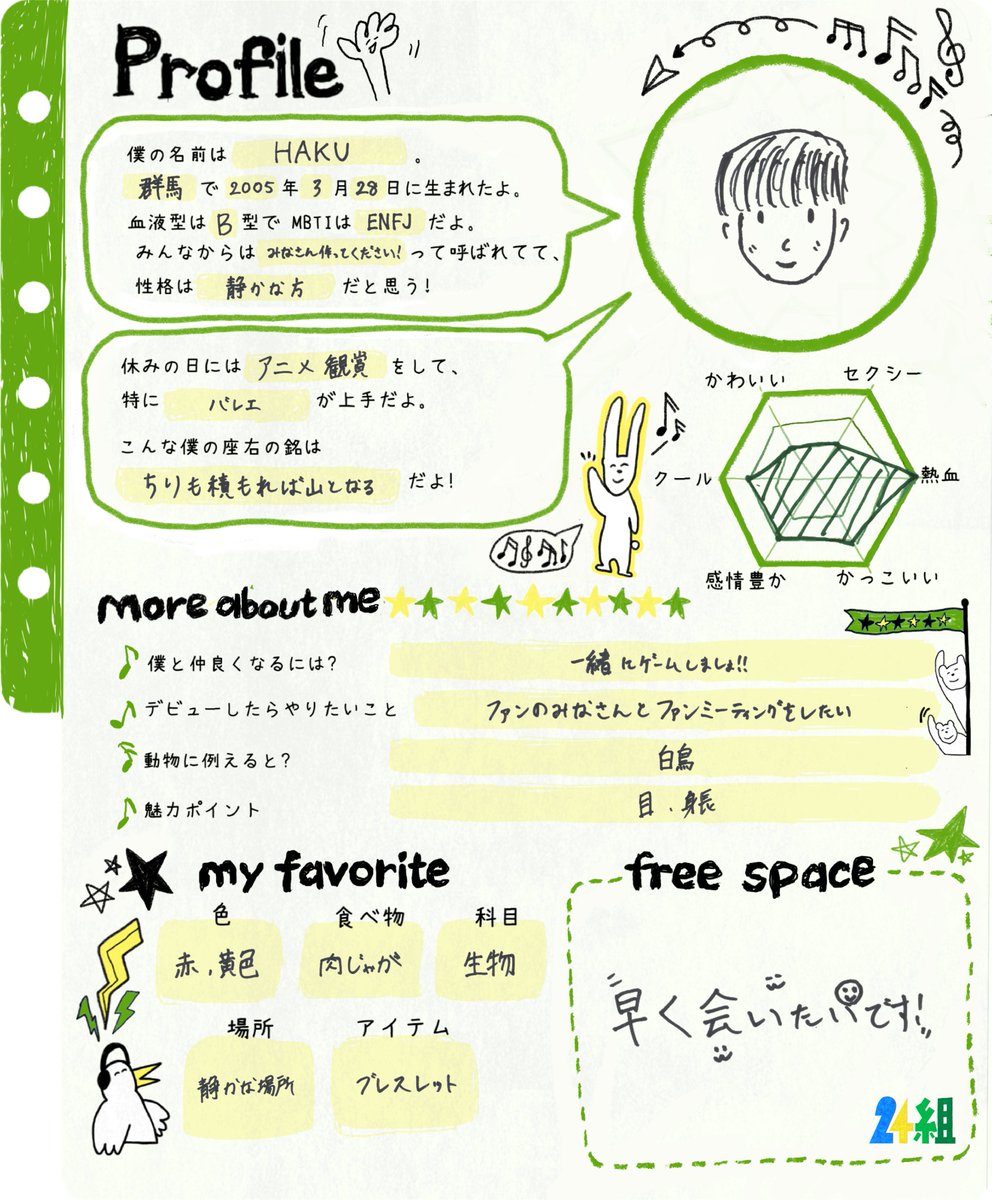 Profile
僕の名前は HAKU 。
群馬 で 2005 年 3 月 28 日に生まれたよ。
血液型は B 型で MBTIは ENFJ だよ。
みんなからは みなさん作ってください! って呼ばれてて、
性格は 静かな方 だと思う!
休みの日には アニメ観賞 をして、
特に バレエ が上手だよ。
こんな僕の座右の銘は
ちりも積もれば山となる だよ!
かわいい
セクシー
クール
熱血
感情豊か
かっこいい
more about me
僕と仲良くなるには? 一緒にゲームしましょ!!
デビューしたらやりたいこと ファンのみなさんとファンミーティングをしたい
動物に例えると? 白鳥
魅力ポイント 目、身長
my favorite
色 食べ物 科目
赤、黄色 肉じゃが 生物
場所 アイテム
静かな場所 ブレスレット
free space
早く会いたいです!
24組